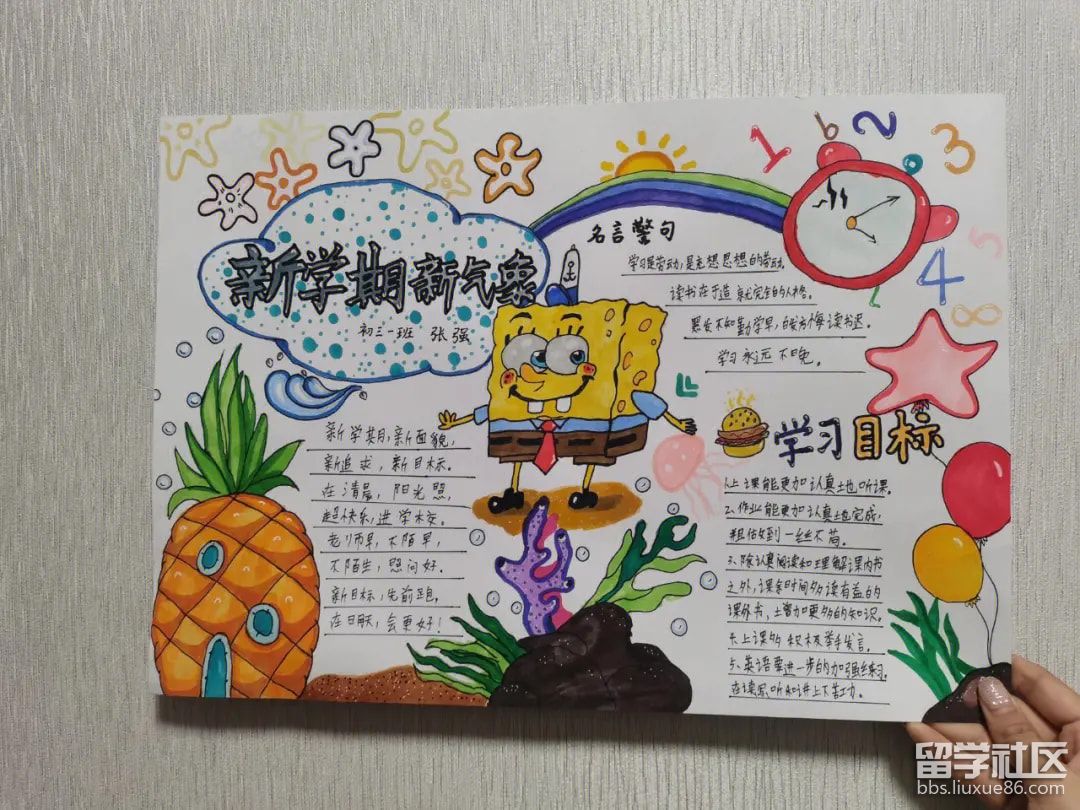 新学期新气象
初三一班 张强
新学期,新面貌,
新追求,新目标。
在清晨,阳光照,
起快乐,进学校。
老师早,不陌早,
不陌生,慰问好。
新目标,先前跑,
在明天,会更好!
名言警句
学习是劳动,是充想思想的劳动。
读书在于造就完全的人格。
黑发不知勤学早,白发方悔读书迟。
学习永远不晚。
学习目标
1.上课能更加认真地听课。
2.作业能更加认真地完成,
粗估做到一丝不苟。
3、除认真阅读和理解课内书
之外,课余时间多读有益的
课外书,土曾加更多的知识。
4.上课多积极举手发言。
5、英语要进一步的加强练习,
在读写听和讲上下苦功。
1 6 2 3
5
4
8
留学社区
bbs.liuxue86.com